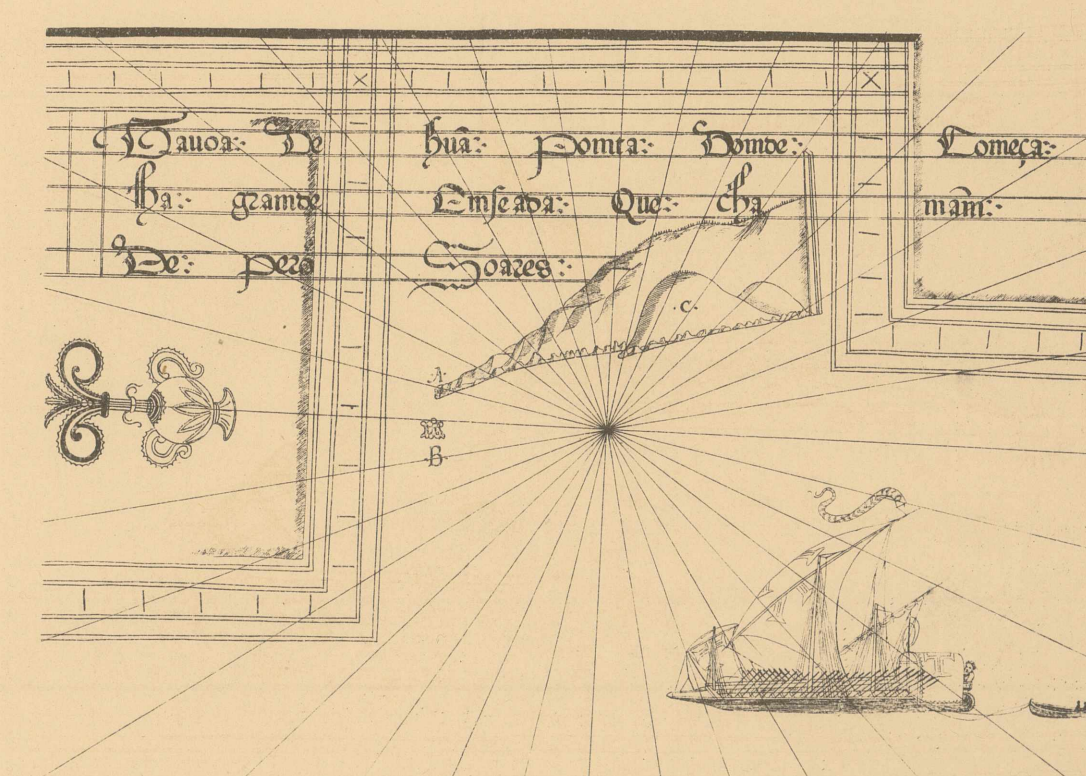 Tavoa: De hũa: pomta: Domde: Começa:
ha: gramde Emseada: Que: cha mam:
De: pero Soares:
A
B
C